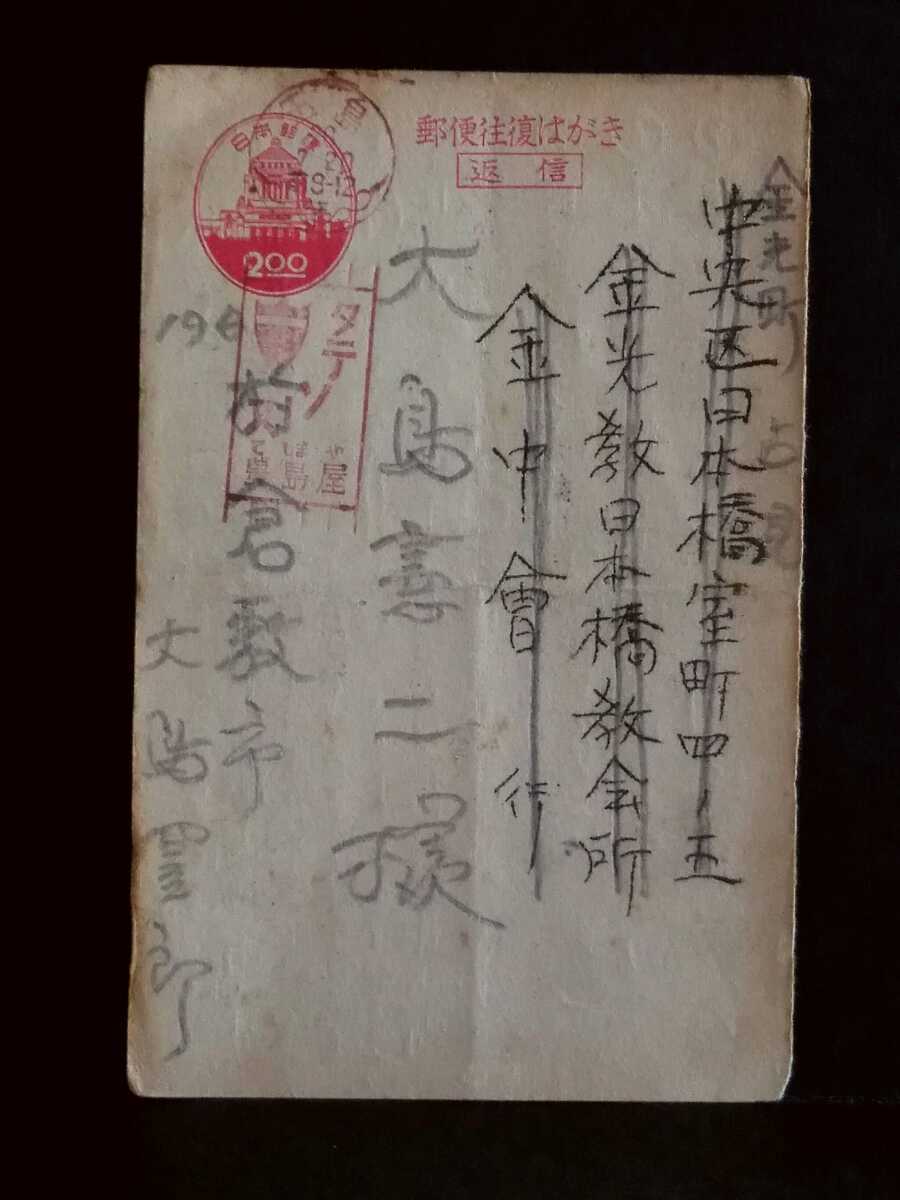 郵便往復はがき
返信
日本郵便
2.00
島
タテノ
豊島屋
金光町
中央区日本橋室町四ノ五
金光教日本橋教会所
金中會行
大島憲二様
倉敷市
大島
郎